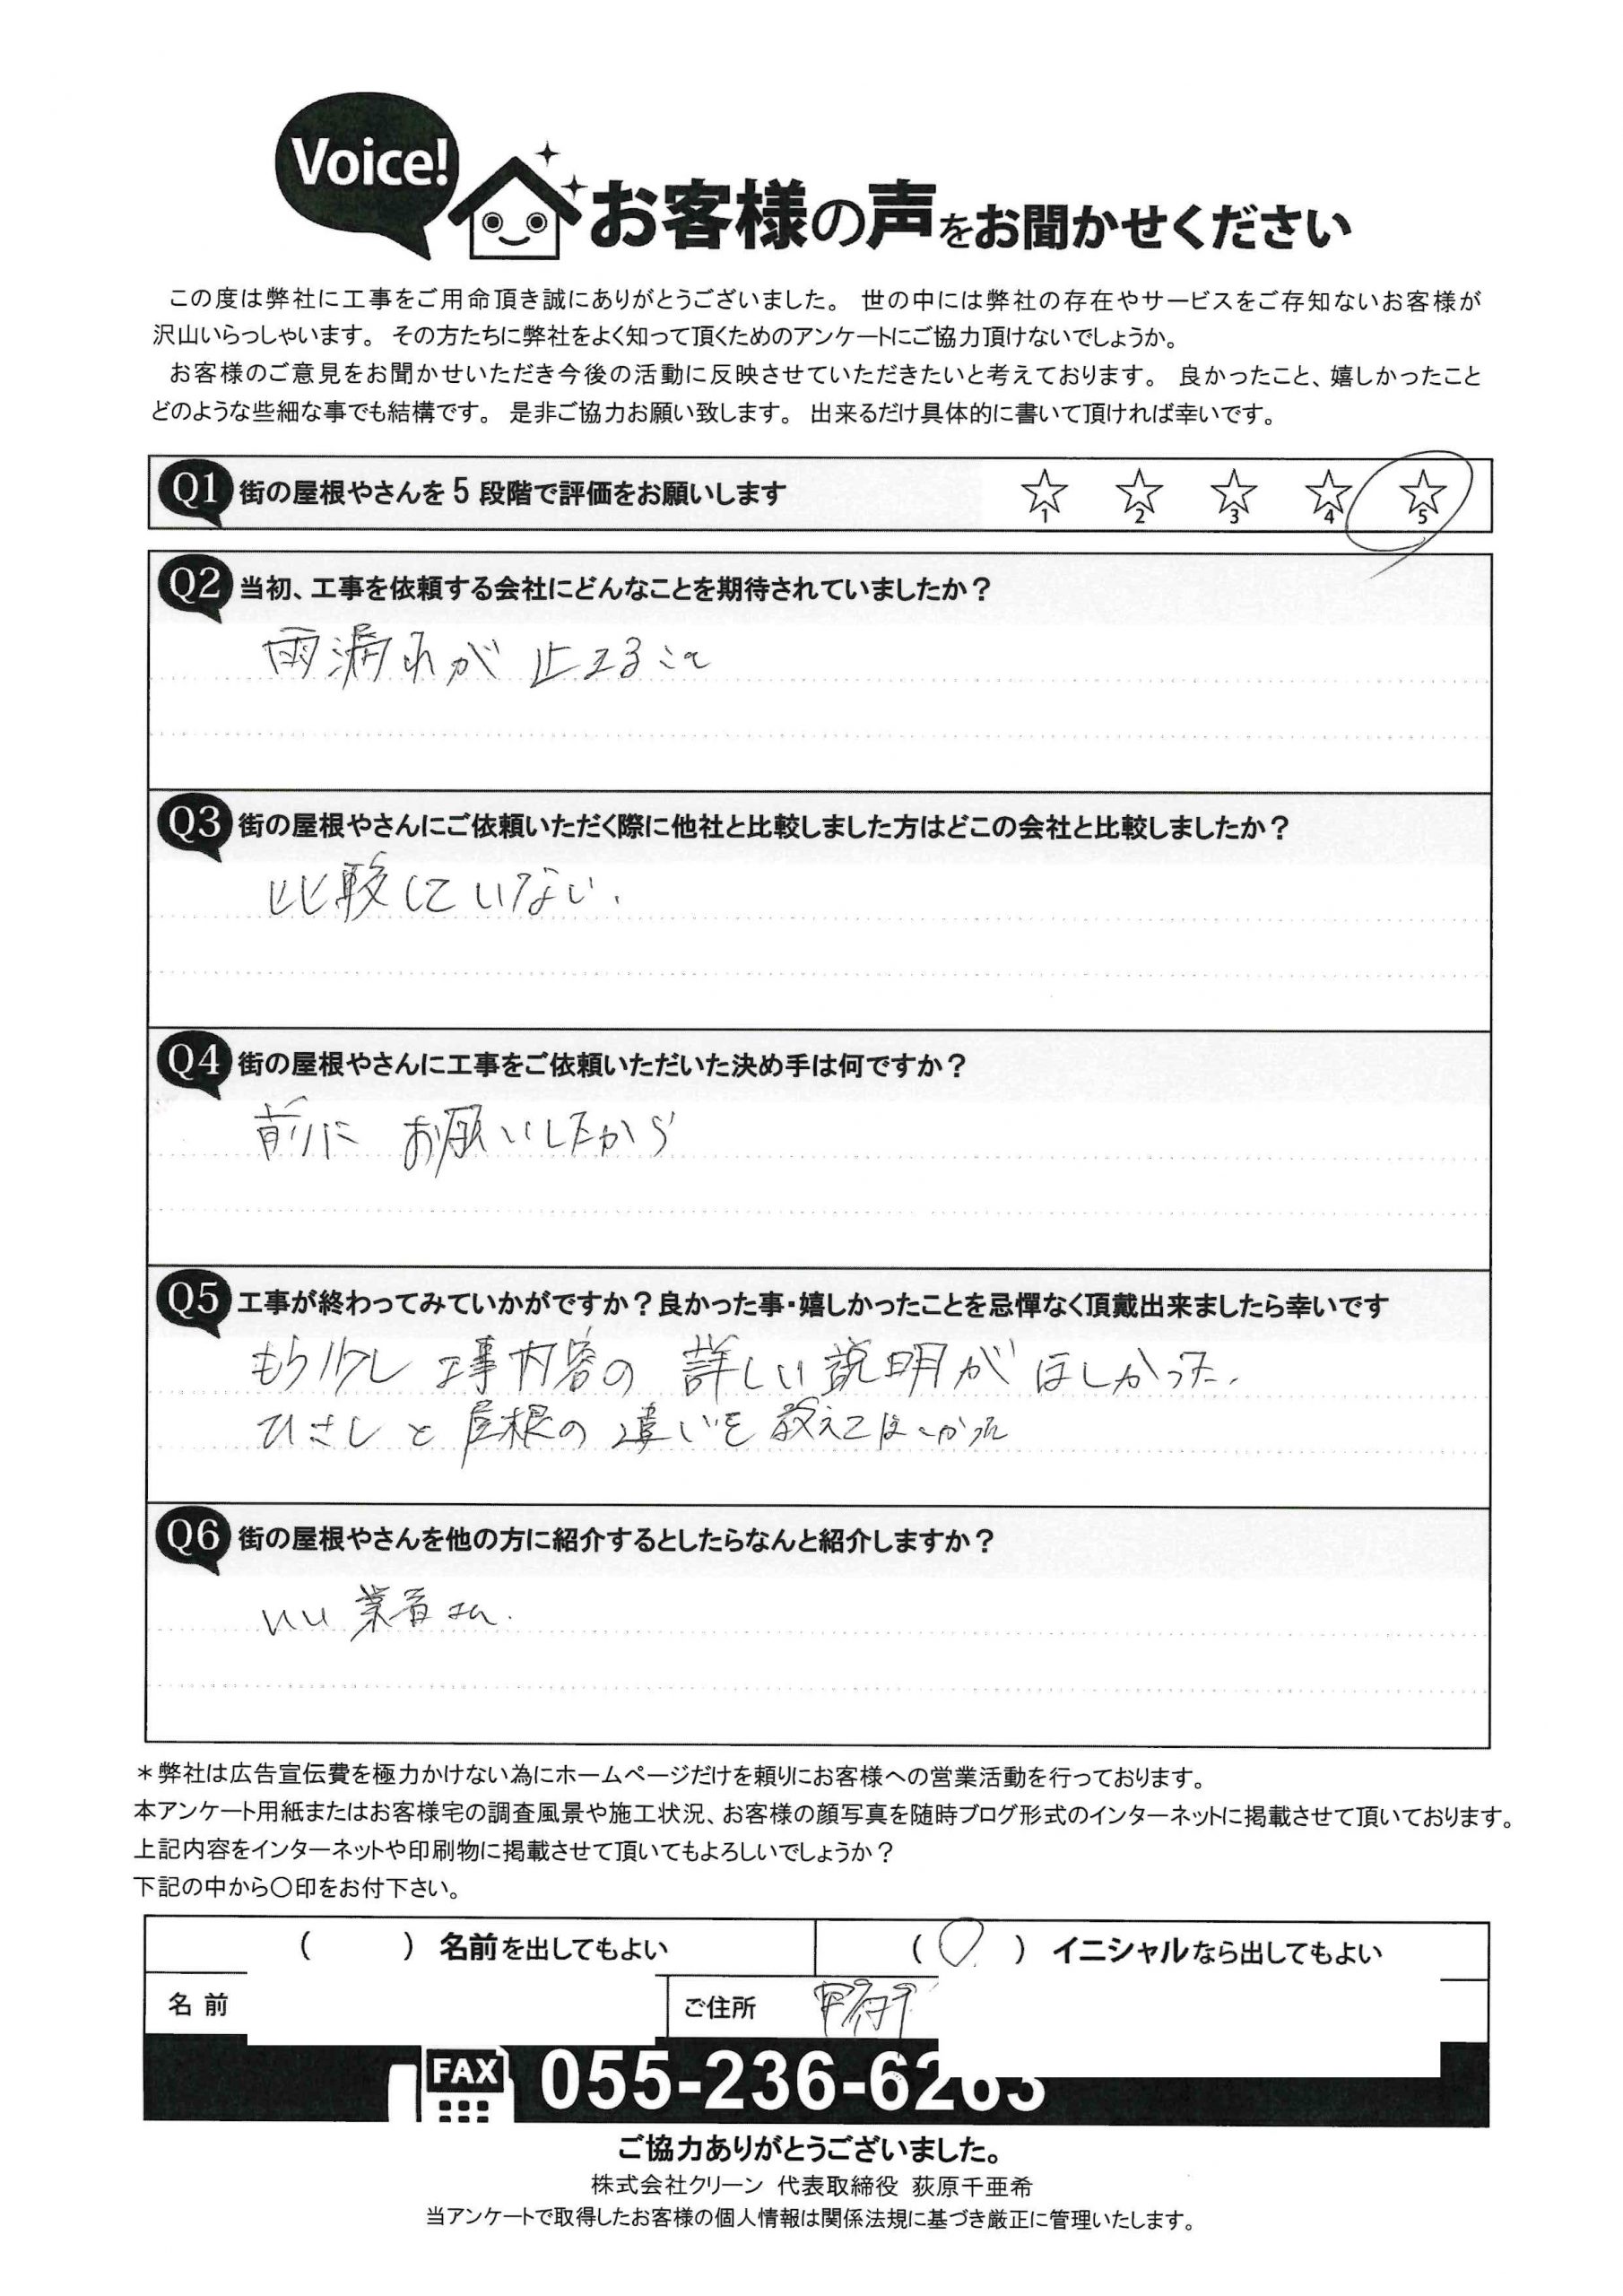 Voice!
お客様の声をお聞かせください
この度は弊社に工事をご用命頂き誠にありがとうございました。 世の中には弊社の存在やサービスをご存知ないお客様が
沢山いらっしゃいます。 その方たちに弊社をよく知って頂くためのアンケートにご協力頂けないでしょうか。
お客様のご意見をお聞かせいただき今後の活動に反映させていただきたいと考えております。 良かったこと、嬉しかったこと
どのような些細な事でも結構です。 是非ご協力お願い致します。 出来るだけ具体的に書いて頂ければ幸いです。
Q1 街の屋根やさんを5段階で評価をお願いします ☆1 ☆2 ☆3 ☆4 ☆5
Q2 当初、工事を依頼する会社にどんなことを期待されていましたか？
雨漏れが 止まること
Q3 街の屋根やさんにご依頼いただく際に他社と比較しました方はどこの会社と比較しましたか？
比較していない.
Q4 街の屋根やさんに工事をご依頼いただいた決め手は何ですか？
前に お願いしたから
Q5 工事が終わってみていかがですか？良かった事・嬉しかったことを忌憚なく頂戴出来ましたら幸いです
もう少し 工事内容の 詳しい説明が ほしかった.
ひさしと 屋根の 違いを 教えてほしかった
Q6 街の屋根やさんを他の方に紹介するとしたらなんと紹介しますか？
いい 業者さん.
＊弊社は広告宣伝費を極力かけない為にホームページだけを頼りにお客様への営業活動を行っております。
本アンケート用紙またはお客様宅の調査風景や施工状況、お客様の顔写真を随時ブログ形式のインターネットに掲載させて頂いております。
上記内容をインターネットや印刷物に掲載させて頂いてもよろしいでしょうか？
下記の中から〇印をお付下さい。
（　　）名前を出してもよい （〇）イニシャルなら出してもよい
名前 ご住所 甲府市
FAX 055-236-6263
ご協力ありがとうございました。
株式会社クリーン 代表取締役 荻原千亜希
当アンケートで取得したお客様の個人情報は関係法規に基づき厳正に管理いたします。